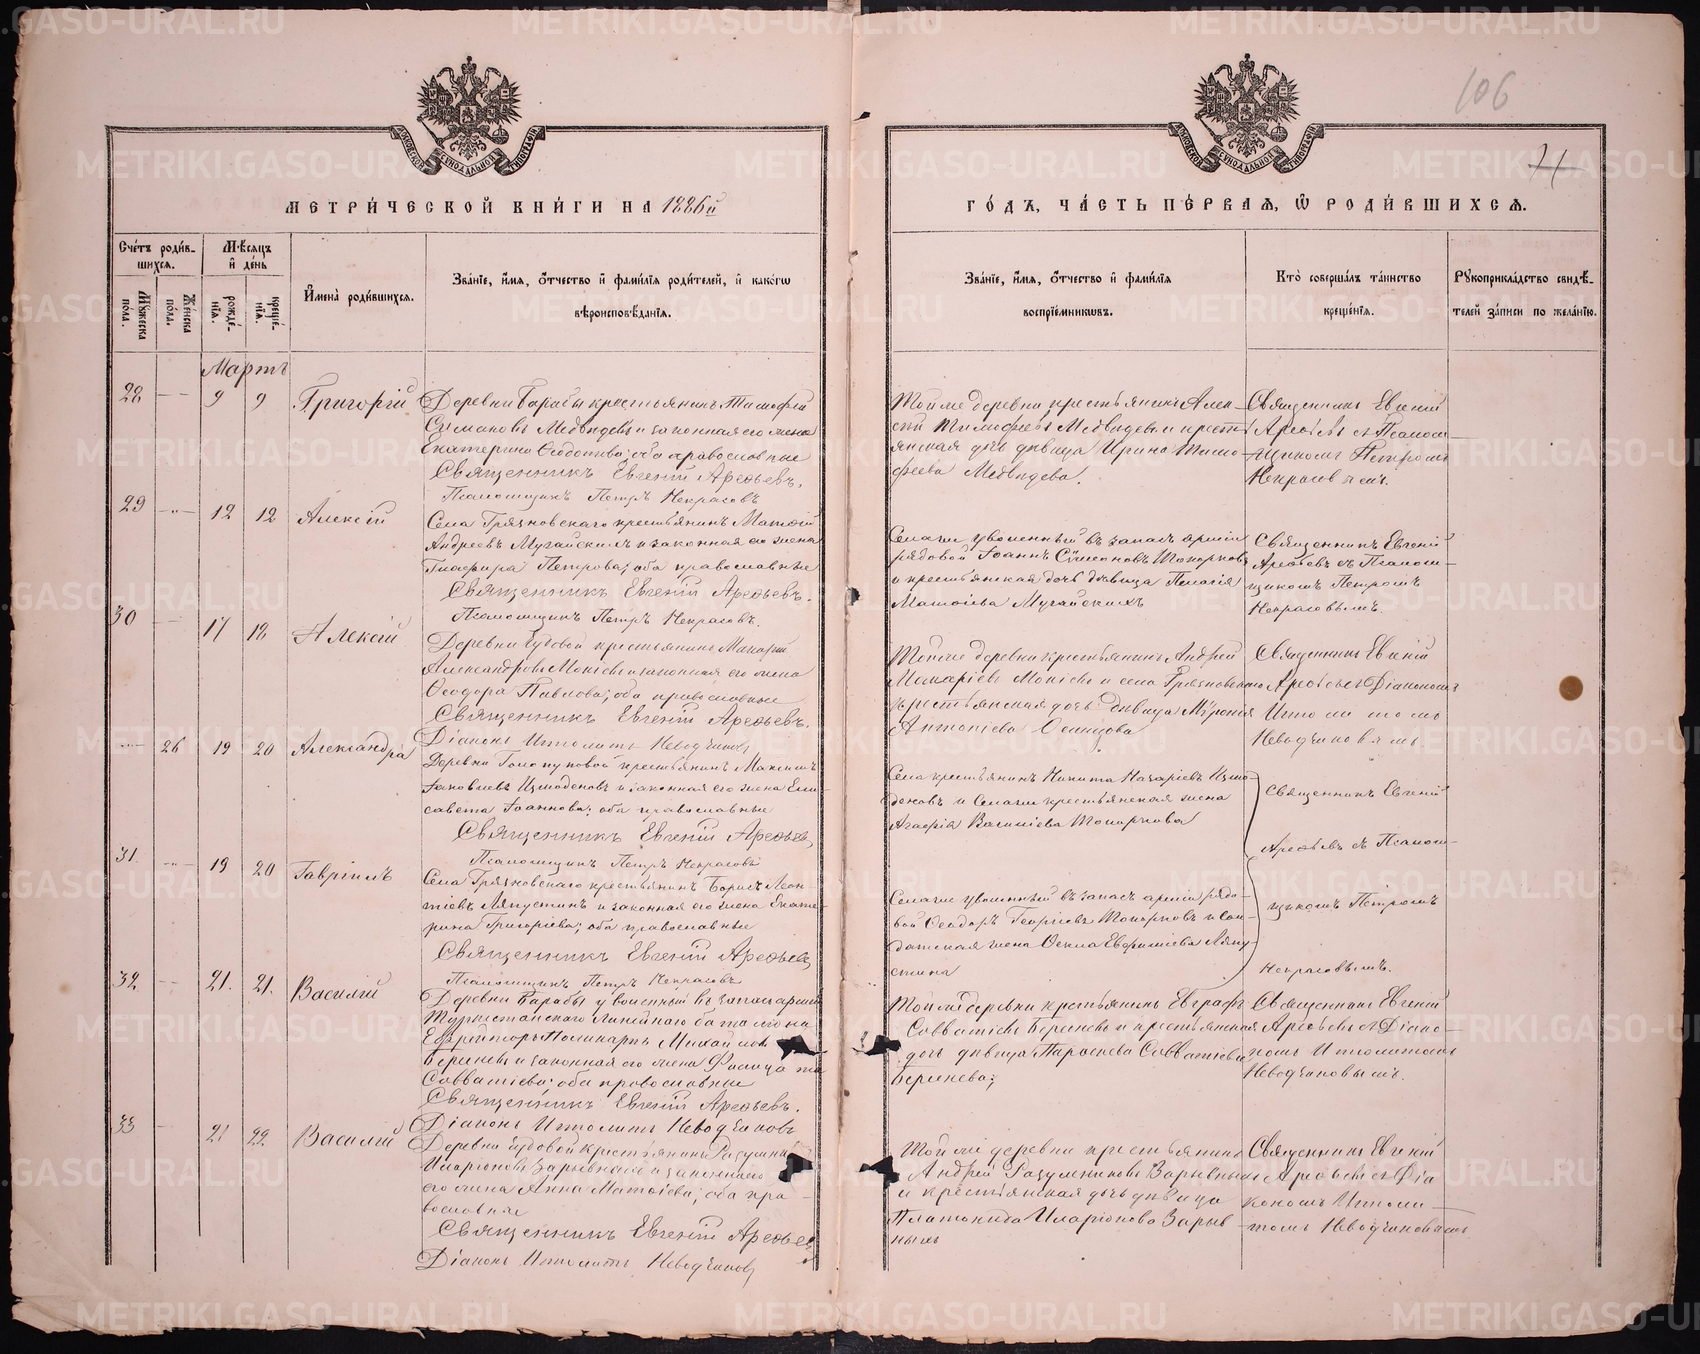 106
11
МЕТРИ́ЧЕСКОЙ КНИ́ГИ НА 1886й
ГО́ДЪ, ЧА́СТЬ ПЕ́РВАЯ, Ѽ РОДИ́ВШИХСЯ.
Сче́тъ роди́в-
шихся.
Му́жеска
по́ла.
Же́нска
по́ла.
Мѣ́сяцъ
и҆ де́нь
рожде́-
нїя.
креще́-
нїя.
И҆мена̀ роди́вшихся.
Зва́нїе, и҆́мя, ѻ҆́тчество и҆ фами́лїя роди́телей, и҆ како́гѡ
вѣроисповѣ́данїя.
Зва́нїе, и҆́мя, ѻ҆́тчество и҆ фами́лїя
воспрїе́мникѡвъ.
Кто̀ соверша́лъ та́инство
креще́нїя.
Рꙋкоприкла́дство свидѣ́-
телей за́писи по жела́нїю.
Мартъ
28
9 9
Григорій
Деревни Барабы крестьянинъ Тимофей
Симоновъ Медвѣдевъ и законная его жена
Екатерина Ѳеодотова; оба православные
Священникъ Евгеній Арефьевъ.
Псаломщикъ Петръ Некрасовъ
Тойже деревни крестьянинъ Алек-
сѣй Тимофеевъ Медвѣдевъ и крест-
янская дочь дѣвица Ирина Тимо-
феева Медвѣдева.
Священникъ Евгеній
Арефьевъ съ Псалом-
щикомъ Петромъ
Некрасовымъ.
29
12 12
Алексій
Села Грязновскаго крестьянинъ Матѳій
Андреевъ Мугайскихъ и законная его жена
Глафира Петрова; оба православные
Священникъ Евгеній Арефьевъ.
Псаломщикъ Петръ Некрасовъ.
Селаже уволенный въ запасъ арміи
рядовой Іоаннъ Сѷмеоновъ Топорковъ
и крестьянская дочь дѣвица Пелагія
Матѳіева Мугайскихъ
Священникъ Евгеній
Арефьевъ съ Псалом-
щикомъ Петромъ
Некрасовымъ.
30
17 18
Алексій
Деревни Чудовой крестьянинъ Макарій
Александровъ Мокіевъ и законная его жена
Ѳеодора Павлова; оба православные
Священникъ Евгеній Арефьевъ.
Діаконъ Ипполитъ Неводчиковъ
Тойже деревни крестьянинъ Андрей
Макаріевъ Мокіевъ и села Грязновскаго
крестьянская дочь дѣвица
Антоніева Осинцова
Священникъ Евгеній
Арефьевъ съ Діакономъ
Ипполитомъ
Неводчиковымъ
26
19 20
Александра
Деревни Голопуповой крестьянинъ Максимъ
Іаковлевъ Измоденовъ и законная его жена Ели-
савета Іоаннова; оба православные
Священникъ Евгеній Арефьевъ,
Псаломщикъ Петръ Некрасовъ
Села крестьянинъ Никита Назаріевъ Измо-
деновъ и Селаже крестьянская жена
Агафія Васильева Топоркова
Священникъ Евгеній
Арефьевъ съ Псалом-
щикомъ Петромъ
Некрасовымъ.
31.
19 20
Гавріилъ
Села Грязновскаго крестьянинъ Борисъ Леон-
тіевъ Ляпустинъ и законная его жена Екате-
рина Григоріева; оба православные
Священникъ Евгеній Арефьевъ
Псаломщикъ Петръ Некрасовъ
Селаже уволенный въ запасъ арміи рядо-
вой Ѳеодоръ Георгіевъ Топорковъ и сол-
датская жена Ѳекла Ляпу-
стина
32
21. 21.
Василій
Деревни Барабы уволенный въ запасъ арміи
Туркестанскаго Линейнаго баталіона
Ефрейторъ Поликарпъ Михайловъ
Береневъ и законная его жена
Савватіева; оба православные
Священникъ Евгеній Арефьевъ.
Діаконъ Ипполитъ Неводчиковъ
Тойже деревни крестьянинъ Евграфъ
Савватіевъ Береневъ и крестьянская
дочь дѣвица Параскева Савватіева
Беренева;
Священникъ Евгеній
Арефьевъ съ Діако-
номъ Ипполитомъ
Неводчиковымъ.
33
21 22
Василій
Деревни Чудовой крестьянинъ Разумникъ
Иларіоновъ Зарывныхъ и законная
его жена Анна Матѳіева; оба пра-
вославные
Священникъ Евгеній Арефьевъ
Діаконъ Ипполитъ Неводчиковъ
Тойже деревни крестьянинъ
Андрей Разумниковъ Зарывныхъ
и крестьянская дочь дѣвица
Платонида Иларіонова Зарыв-
ныхъ
Священникъ Евгеній
Арефьевъ съ Діа-
кономъ Ипполи-
томъ Неводчиковымъ